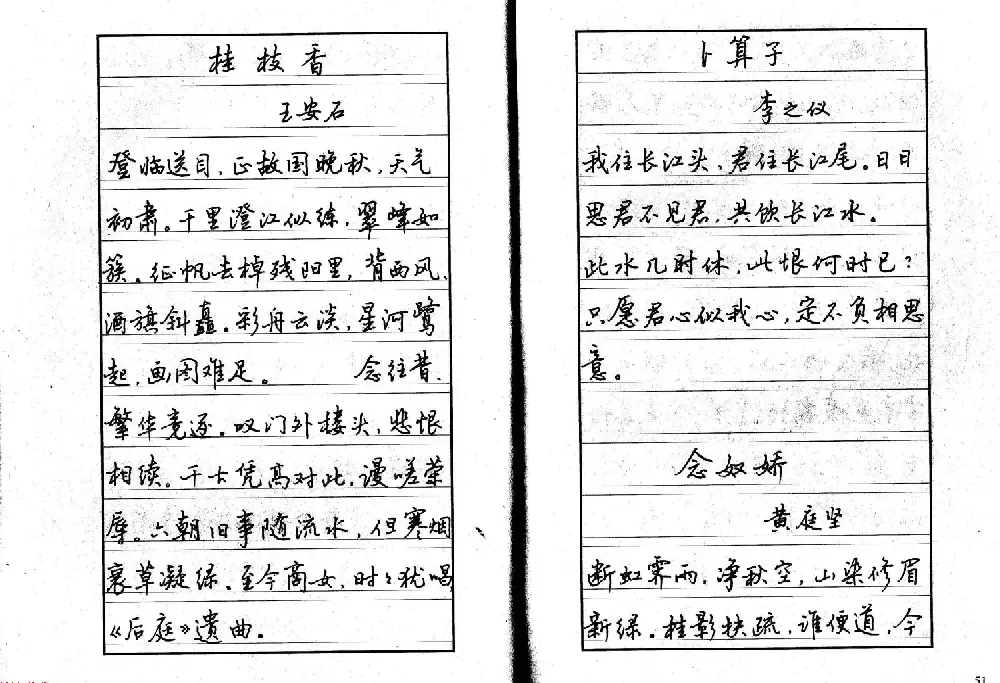 桂枝香
王安石
登临送目，正故国晚秋，天气
初肃。千里澄江似练，翠峰如
簇。征帆去棹残阳里，背西风，
酒旗斜矗。彩舟云淡，星河鹭
起，画图难足。 念往昔，
繁华竞逐。叹门外楼头，悲恨
相续。千古凭高对此，谩嗟荣
辱。六朝旧事随流水，但寒烟
衰草凝绿。至今商女，时々犹唱，
《后庭》遗曲。
卜算子
李之仪
我住长江头，君住长江尾。日日
思君不见君，共饮长江水。
此水几时休，此恨何时已？
只愿君心似我心，定不负相思
意。
念奴娇
黄庭坚
断虹霁雨，净秋空，山染修眉
新绿。桂影扶疏，谁便道，今
51